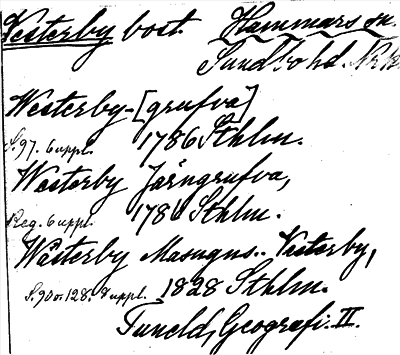 Westerby bost. Hammars sn.
Sundbo hd. Nrk
Westerby-[grufva]
S. 97. 6 uppl. 1786 Sthlm.
Westerby Järngrufva,
Reg. 6 uppl. 1786 Sthlm.
Wästerby Masugn.. Vesterby,
S. 90 o. 128. 8 uppl. 1828 Sthlm.
Tuneld, Geografi. II.